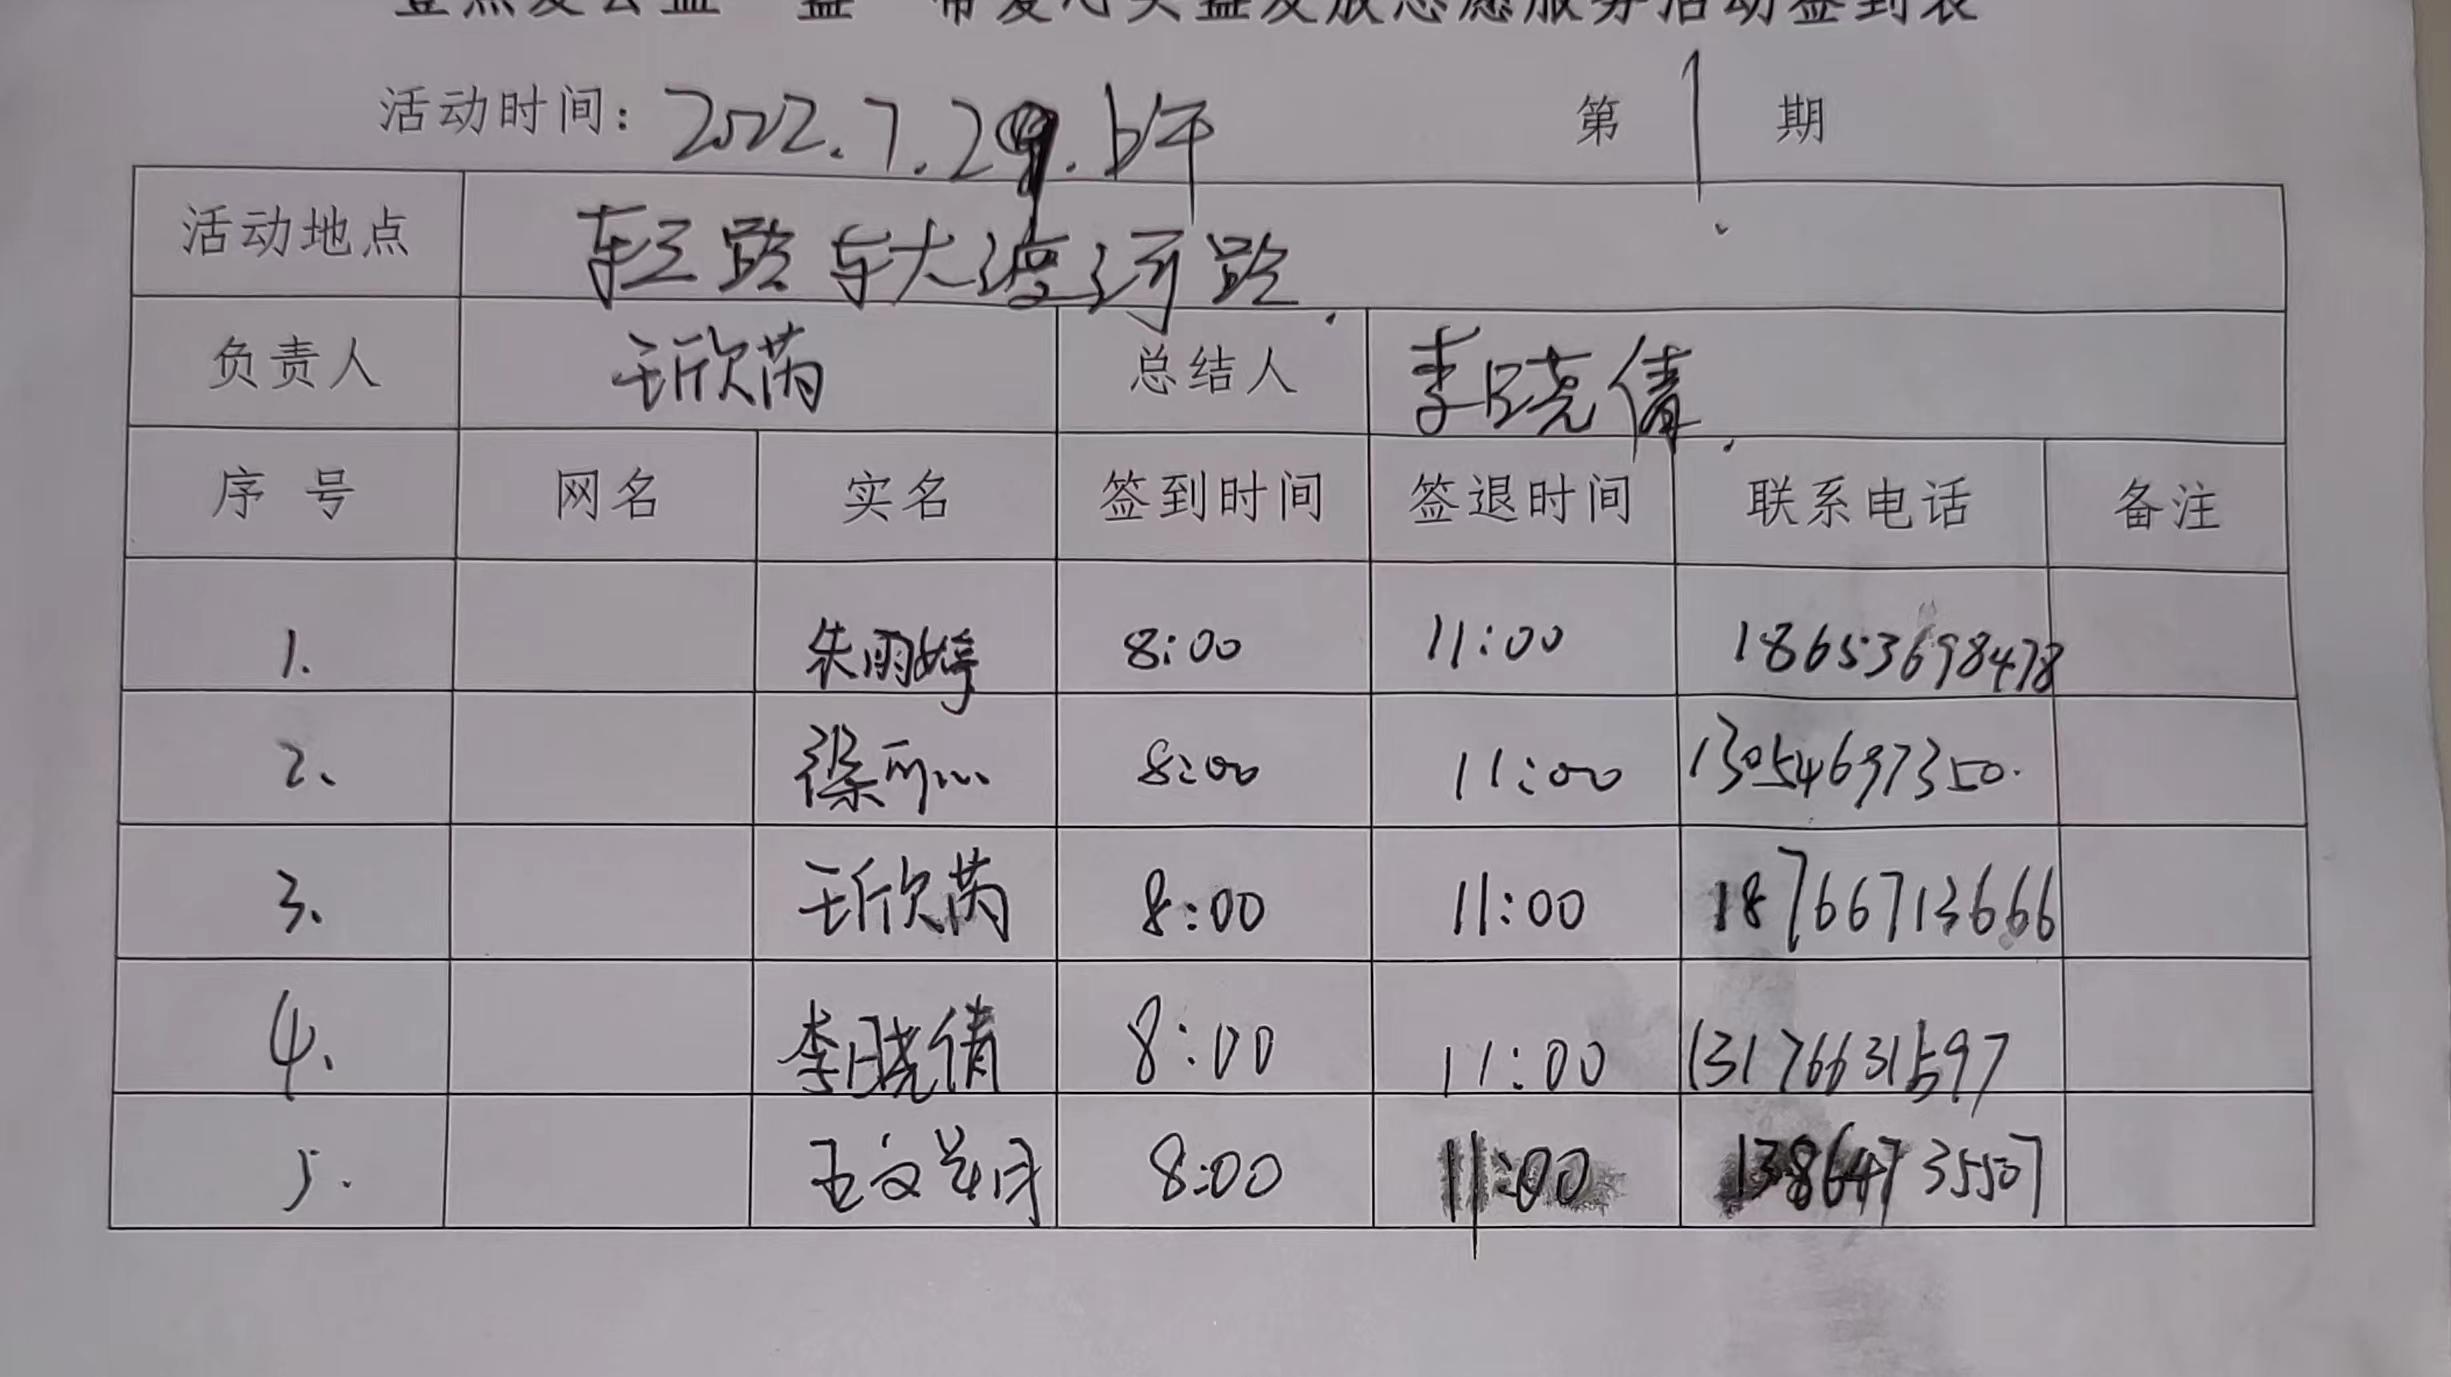 活动时间：2022.7.29.上午 第1期
活动地点 路 大渡河路
负责人 王欣芮 总结人 李晓倩
序号 网名 实名 签到时间 签退时间 联系电话 备注
1. 朱丽婷 8:00 11:00 18653698478
2、 梁可心 8:00 11:00 13054697350.
3、 王欣芮 8:00 11:00 18766713666
4、 李晓倩 8:00 11:00 13176631597
5. 王文 8:00 11:00 13864735507